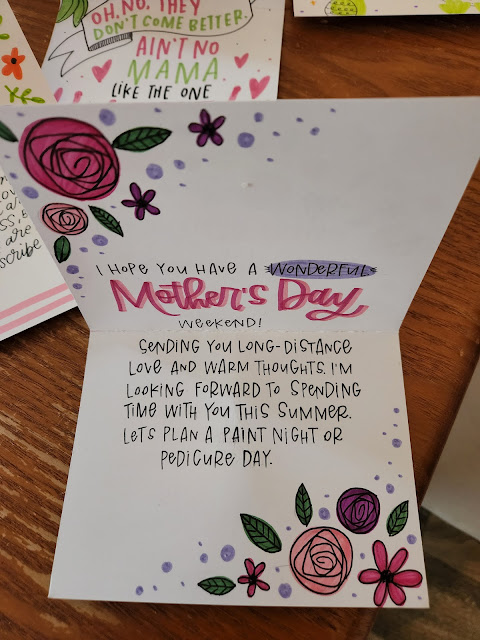 OH, NO, THEY
DON'T COME BETTER.
AIN'T NO
MAMA
LIKE THE ONE
are
scribe
I HOPE YOU HAVE A WONDERFUL
Mother's Day
WEEKEND!
SENDING YOU LONG-DISTANCE
LOVE AND WARM THOUGHTS. I'M
LOOKING FORWARD TO SPENDING
TIME WITH YOU THIS SUMMER.
LETS PLAN A PAINT NIGHT OR
PEDICURE DAY.